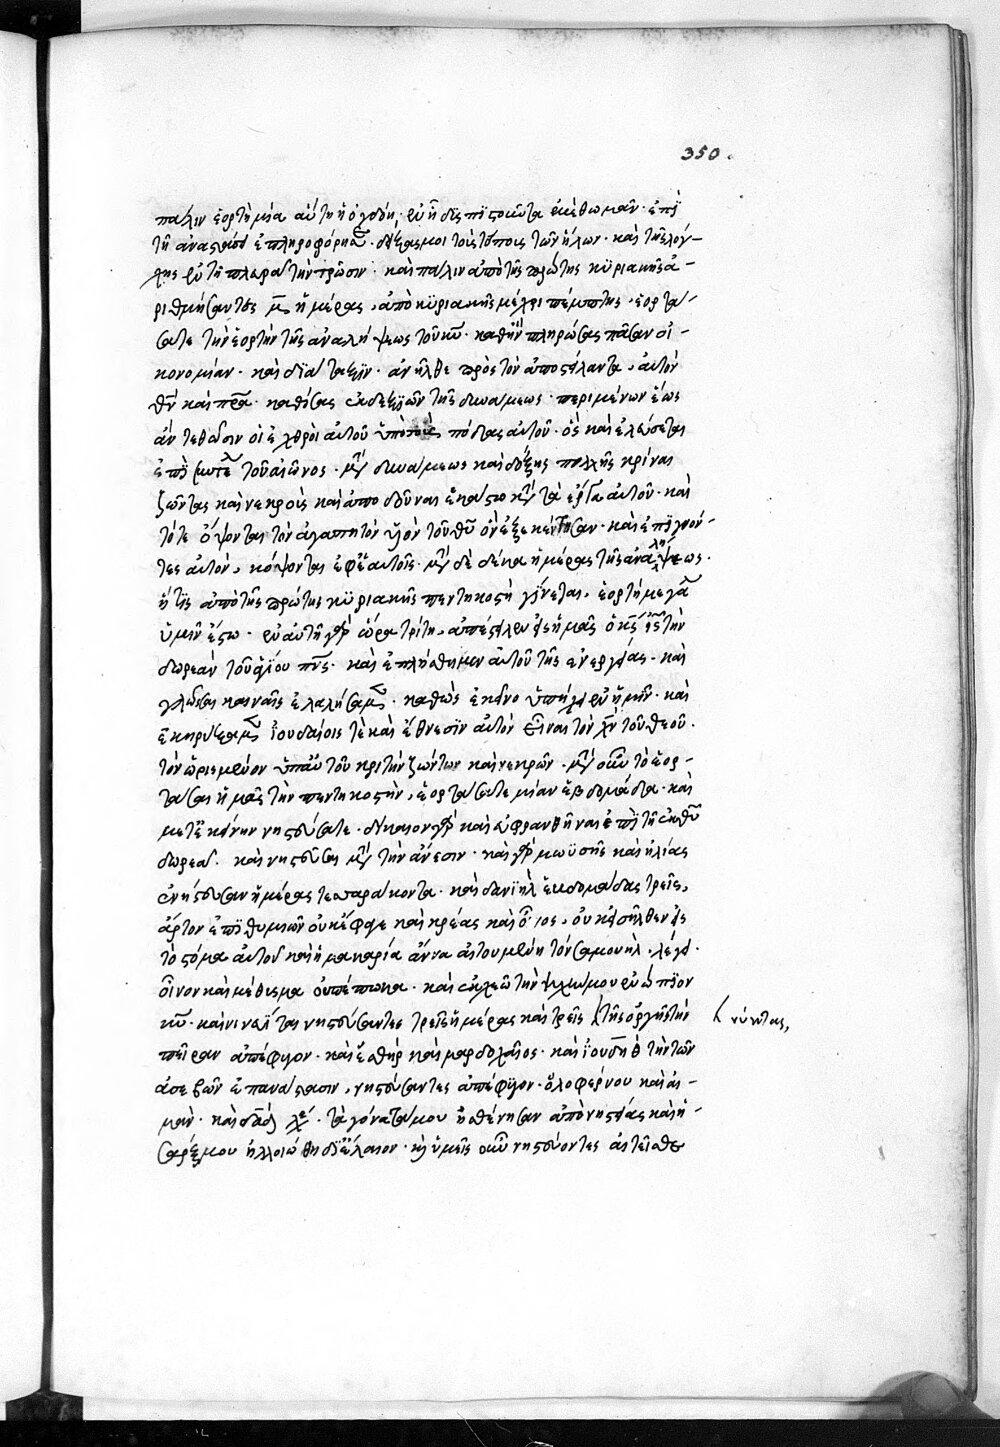 350.
πάλιν ἑορτὴ μία αὕτη ἡ ὀγδόη, ἐν ᾗ δϊσπϊστοῦντα ἐμὲ θωμᾶν. ἐπϊ
τῇ ἀναστάσει ἐπληροφόρησε. δείξας μοι τοὺς τύπους τῶν ἥλων. καὶ τῆς λόγ-
χης ἐν τῇ πλευρᾷ τὴν τρῶσιν. καὶ πάλιν ἀπὸ τῆς πρώτης κϋριακῆς ἀ-
ριθμήσαντες μ̅ ἡμέρας, ἀπὸ κϋριακῆς μέχρι πέμπτης, ἑορτά-
σατε τὴν ἑορτὴν τῆς ἀναλήψεως τοῦ κ̅υ̅. καθ' ἣν πληρώσας πᾶσαν οἰ-
κονομίαν. καὶ διάταξϊν. ἀνῆλθε πρὸς τὸν ἀποστείλαντα, αὐτὸν
θ̅ν̅ καὶ π̅ρ̅α̅. καθίσας ἐκ δεξϊῶν τῆς δυνάμεως. περιμένων ἕως
ἂν τεθῶσιν οἱ ἐχθροὶ αὐτοῦ ὑπὸ τοὺς πόδας αὐτοῦ. ὃς καὶ ἐλεύσεται
ἐπϊ συντελ τοῦ αἰῶνος. μετὰ δυνάμεως καὶ δόξης πολλῆς κρῖναι
ζῶντας καὶ νεκροὺς καὶ ἀποδοῦναι ἑκάστῳ κατὰ τὰ ἔργα αὐτοῦ. καὶ
τότε ὄψονται τὸν ἀγαπητὸν ϋἱὸν τοῦ θ̅υ̅ ὃν ἐξεκέντησαν. καὶ ἐπϊγνόν-
τες αὐτὸν, κόψονται ἐφ' ἑαυτοῖς. μετὰ δὲ δέκα ἡμέρας τῆς ἀναλήψεως.
ἥτϊς ἀπὸ τῆς πρώτης κϋριακῆς πεντηκοστὴ γίνεται, ἑορτὴ μεγά
ὑμῖν ἔστω. ἐν αὐτῇ γὰρ ὥρα τρίτῃ, ἀπέστειλεν εἰς ἡμᾶς ὁ κ̅ς̅ ι̅ς̅ τὴν
δωρεὰν τοῦ ἁγίου π̅ν̅ς̅. καὶ ἐπλήσθημεν αὐτοῦ τῆς ἐνεργείας. καὶ
γλώσσαις καιναῖς ἐλαλήσαμεν. καθὼς ἐκεῖνο ὑπήχει ἐν ἡμῖν. καὶ
ἐκηρύξαμεν ἰουδαίοις τὲ καὶ ἔθνεσϊν αὐτὸν εἶναι τὸν χ̅ν̅ τοῦ θεοῦ.
τὸν ὡρισμένον ὑπ' αὐτοῦ κριτὴν ζώντων καὶ νεκρῶν. μετὰ οὖν τὸ ἑορ-
τάσαι ἡμᾶς τὴν πεντηκοστὴν, ἑορτάσατε μίαν ἑβδομάδα. καὶ
μετ' ἐκείνην νηστεύσατε. δίκαιον γὰρ καὶ εὐφρανθῆναι ἐπϊ τῇ ἐκ θ̅υ̅
δωρεᾷ. καὶ νηστεῦσαι μετὰ τὴν ἄνεσιν. καὶ γὰρ μωϋσῆς καὶ ἠλίας
ἐνήστευσαν ἡμέρας τεσσαράκοντα. καὶ δανϊὴλ ἑβδομάδας τρεῖς,
ἄρτον ἐπϊθυμιῶν οὐκ ἔφαγε καὶ κρέας καὶ οἶνος, οὐκ εἰσῆλθεν εἰς
τὸ στόμα αὐτοῦ καὶ ἡ μακαρία ἄννα αἰτουμένη τὸν σαμουὴλ. λέγει.
οἶνον καὶ μέθυσμα οὐ πέπωκα. καὶ ἐκχεῶ τὴν ψυχήν μου ἐνώπϊον
κ̅υ̅. καὶ νινευῖται νηστεύσαντες τρεῖς ἡμέρας καὶ τρεῖς τῆς ὀργῆς τὴν
νύκτας,
πεῖραν ἀπέφυγον. καὶ ἐσθὴρ καὶ μαρδοχαῖος. καὶ ἰουδὴθ τὴν τῶν
ἀσεβῶν ἐπανάστασιν, νηστεύσαντες ἀπέφϋγον. ὁλοφέρνου καὶ ἀ-
μάν. καὶ δαδ λέ. τὰ γόνατά μου ἠσθένησαν ἀπὸ νηστείας καὶ ἡ
σάρξ μου ἠλλοιώθη δϊ' ἔλαιον. καὶ ὑμεῖς οὖν νηστεύοντες αἰτεῖσθε